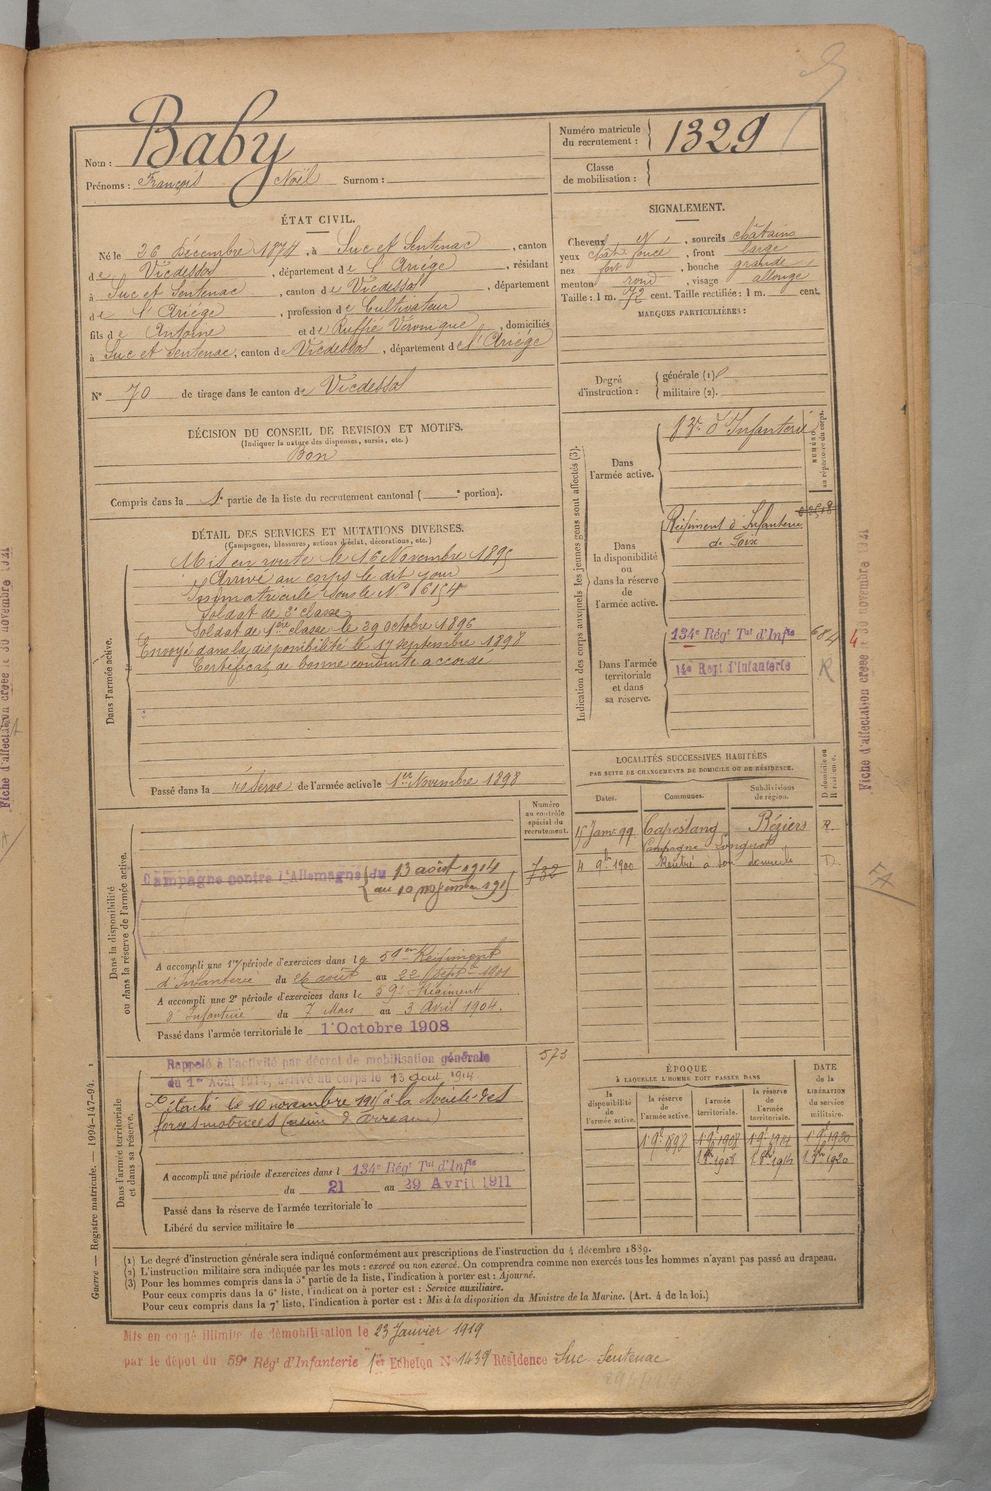 Baby
Nom :
Prénoms : François Noël Surnom :
Numéro matricule du recrutement : 1329
Classe de mobilisation :
ÉTAT CIVIL.
Né le 26 Décembre 1874, à Suc et Sentenac, canton
de Vicdessos, département de l'Ariège, résidant
à Suc et Sentenac, canton de Vicdessos, département
de l'Ariège, profession de Cultivateur
fils de Antoine et de Ruffié Véronique, domiciliés
à Suc et Sentenac, canton de Vicdessos, département de l'Ariège
N° 70 de tirage dans le canton de Vicdessos
SIGNALEMENT.
Cheveux, sourcils châtains
yeux chât foncé, front large
nez fort, bouche grande
menton rond, visage allongé
Taille : 1 m. 72 cent. Taille rectifiée : 1 m. cent.
MARQUES PARTICULIÈRES :
Degré d'instruction : générale (1)
militaire (2).
DÉCISION DU CONSEIL DE REVISION ET MOTIFS.
(Indiquer la nature des dispenses, sursis, etc.)
Bon
Compris dans la 1e partie de la liste du recrutement cantonal ( e portion).
DÉTAIL DES SERVICES ET MUTATIONS DIVERSES.
(Campagnes, blessures, actions d'éclat, décorations, etc.)
Dans l'armée active.
Mis en route le 16 Novembre 1895
Arrivé au corps le dit jour
Immatriculé sous le N° 16154
Soldat de 2e classe
Soldat de 1ère classe le 29 octobre 1896
Envoyé dans la disponibilité le 17 septembre 1898
Certificat de bonne conduite accordé
Passé dans la réserve de l'armée active le 1er Novembre 1898
Indication des corps auxquels les jeunes gens sont affectés (3).
NUMÉRO au répertoire du corps.
Dans l'armée active.
d'Infanterie
Dans la disponibilité ou dans la réserve de l'armée active.
Régiment d'Infanterie
de Foix
Dans l'armée territoriale et dans sa réserve.
134e Régt Tal d'Infie 684
14e Regt d'Infanterie R
Fiche d'affectation créée le 30 novembre 1921
Fiche d'affectation créée le 30 novembre 1921
LOCALITÉS SUCCESSIVES HABITÉES
PAR SUITE DE CHANGEMENTS DE DOMICILE OU DE RÉSIDENCE.
Dates. Communes. Subdivisions de région. Domicile ou Résidence.
15 Janv 99 Capestang Béziers R.
Campagne Longuet
4 9bre 1900 Rentré a son domicile D.
Numéro au contrôle spécial du recrutement.
Dans la disponibilité ou dans la réserve de l'armée active.
Campagne contre l'Allemagne du 13 août 1914
au 10 novembre 1915
732
A accompli une 1re période d'exercices dans le 59e Régiment
d'Infanterie du 26 août au 22 Septbre 1901
A accompli une 2e période d'exercices dans le 59e Régiment
d'Infanterie du 7 Mars au 3 Avril 1904.
Passé dans l'armée territoriale le 1er Octobre 1908
Dans l'armée territoriale et dans sa réserve.
Rappelé à l'activité par décret de mobilisation générale
du 1er Août 1914, arrivé au corps le 13 août 1914
573
Détaché le 10 novembre 1915 à la Société des
forces motrices (usine d'Arreau)
A accompli une période d'exercices dans l 134e Régt Tal d'Infie
du 21 au 29 Avril 1911
Passé dans la réserve de l'armée territoriale le
Libéré du service militaire le
ÉPOQUE
À LAQUELLE L'HOMME DOIT PASSER DANS
DATE de la LIBÉRATION du service militaire.
la disponibilité de l'armée active. la réserve de l'armée active. l'armée territoriale. la réserve de l'armée territoriale.
Guerre — Registre matricule. — 1994-147-94.
(1) Le degré d'instruction générale sera indiqué conformément aux prescriptions de l'instruction du 4 décembre 1889.
(2) L'instruction militaire sera indiquée par les mots : exercé ou non exercé. On comprendra comme non exercés tous les hommes n'ayant pas passé au drapeau.
(3) Pour les hommes compris dans la 5e partie de la liste, l'indication à porter est : Ajourné.
Pour ceux compris dans la 6e liste, l'indication à porter est : Service auxiliaire.
Pour ceux compris dans la 7e liste, l'indication à porter est : Mis à la disposition du Ministre de la Marine. (Art. 4 de la loi.)
Mis en congé illimité de démobilisation le 23 Janvier 1919
par le dépôt du 59e Régt d'Infanterie 1er Echelon N° 1439 Résidence Suc Sentenac